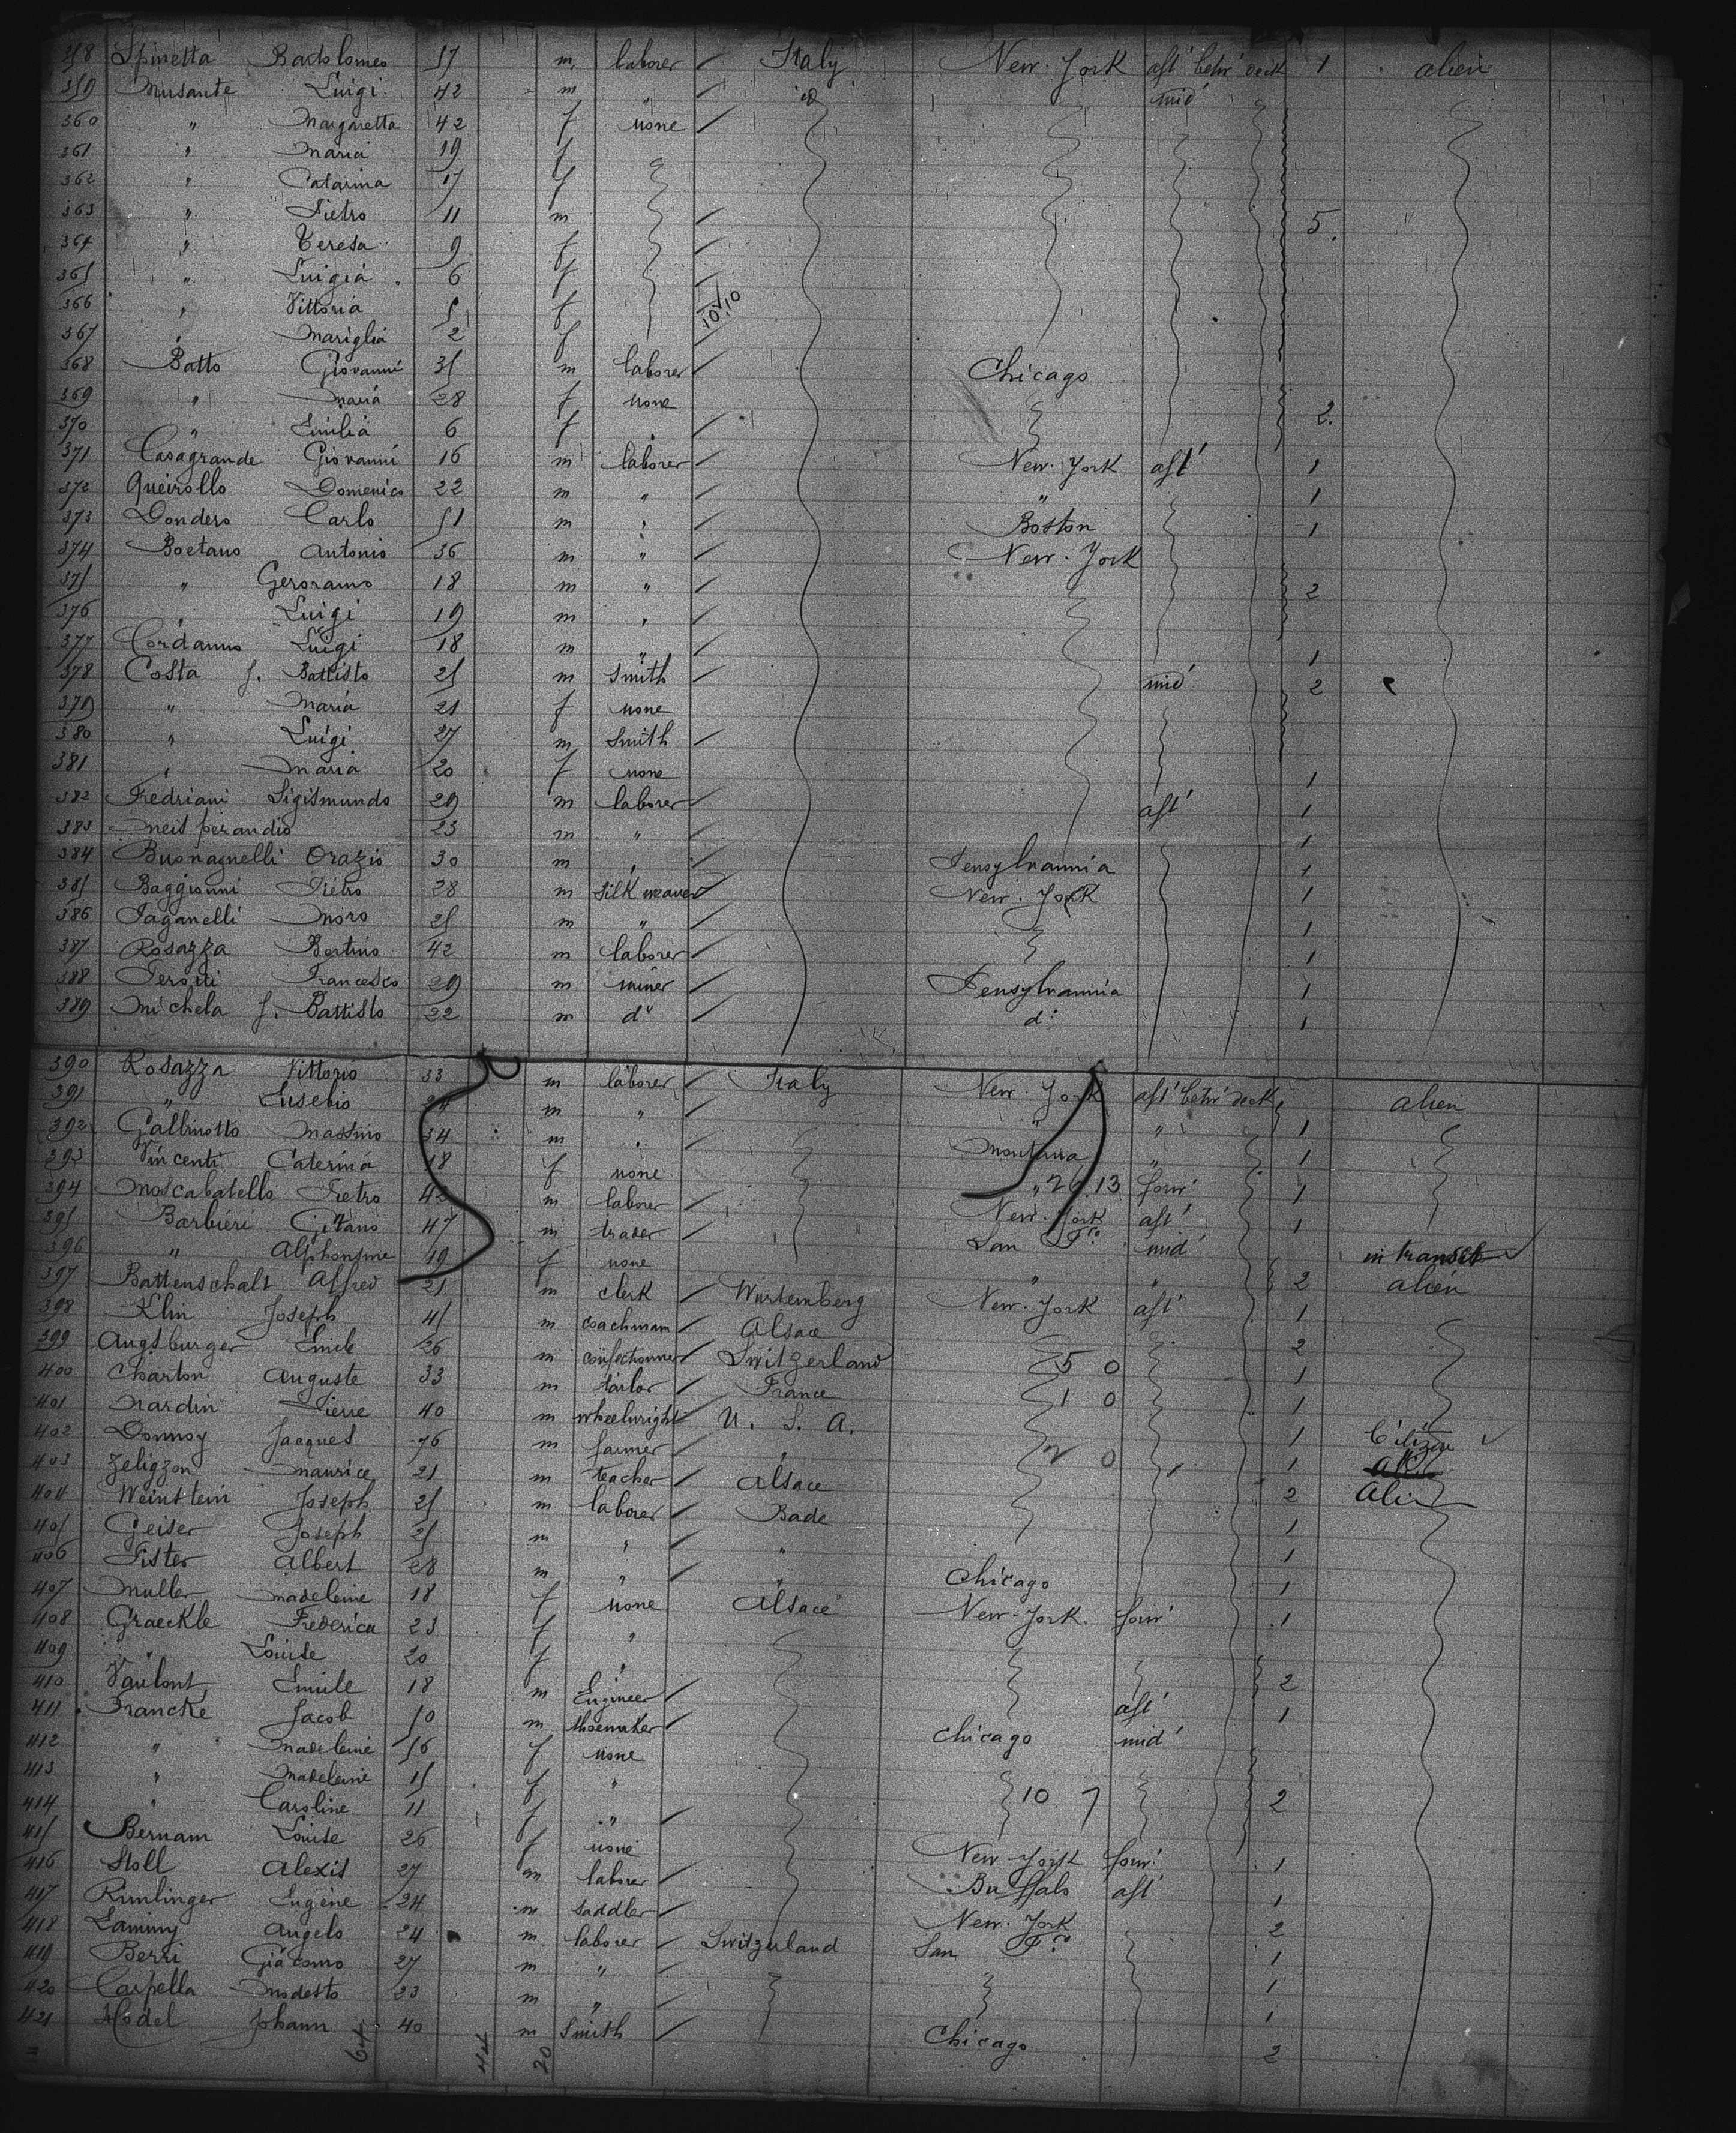 358 Spinetta Bartolomeo 57 m. laborer Italy New-York aft betw deck 1 alien
359 Musante Luigi 42 m " id mid
360 " Margaretta 42 f none
361 " Maria 19 f
362 " Catarina 17 f
363 " Pietro 11 m 5.
364 " Teresa 9 f
365 " Luigia 6 f
366 " Vittoria 5 f 10/10
367 " Mariglia 2 f
368 Batto Giovanni 35 m laborer Chicago
369 " Maria 28 f none 2.
370 " Emilia 6 f "
371 Casagrande Giovanni 16 m laborer New-York aft 1
372 Queirollo Domenico 22 m " " 1
373 Dondero Carlo 51 m " Boston 1
374 Boetano Antonio 36 m " New-York
375 " Geroramo 18 m " 2
376 " Luigi 19 m "
377 Cordanno Luigi 18 m " 1
378 Costa J. Battisto 25 m Smith mid 2
379 " Maria 21 f none
380 " Luigi 27 m Smith
381 " Maria 20 f none 1
382 Frediani Sigismundo 29 m laborer aft 1
383 Meis perandio 23 m " 1
384 Buonagnelli Orazio 30 m " Pensylvannia 1
385 Baggionni Pietro 28 m silk weaver New-York 1
386 Paganelli Moro 25 m " 1
387 Rosazza Bertino 42 m laborer 1
388 Francesco 29 m miner Pensylvannia 1
389 Michela J. Battisto 22 m do do 1
390 Rosazza Vittorio 33 m laborer Italy New-York aft betw deck
391 " Eusebio m " " " 1 alien
392 Galbinotto Massimo 34 m " Montana " 1
393 Vincenti Caterina 18 f none " 26 13 forw 1
394 Moscabatello Pietro 42 m laborer New-York aft 1
395 Barbieri Gitano 47 m trader San Fco mid in transit
396 " Alphonsine 19 f none " " 2 alien
397 Battenschalt Alfred 21 m clerk Wurtemberg New-York aft 1
398 Klin Joseph 45 m coachman Alsace 2
399 Augsburger Emile 26 m confectionner Switzerland 5 0 1
400 Charton Auguste 33 m tailor France 1 0 1
401 Nardin Pierre 40 m wheelwright U. S. A. 1 Citizen
402 Donnoy Jacques 46 m farmer " 2 0 1
403 Zeligzon Maurice 21 m teacher Alsace 2 Alien
404 Weinstein Joseph 25 m laborer Bade 1
405 Geiser Joseph 25 m " " 1
406 Fister Albert 28 m " " Chicago 1
407 Muller Madeleine 18 f none Alsace New-York forw 1
408 Graeckle Frederica 23 f "
409 " Louise 20 f " 2
410 Vaulont Emile 18 m Engineer aft 1
411 Francke Jacob 50 m shoemaker Chicago mid
412 " Madeleine 56 f none
413 " Madeleine 15 f " 10 7 2
414 " Caroline 11 f "
415 Bernam Louise 26 f none New-York forw 1
416 Stoll Alexis 27 m laborer Buffalo aft 1
417 Rimlinger Eugène 24 m saddler New-York 2
418 Laminy Angelo 24 m laborer Switzerland San Fco 1
419 Berri Giacomo 27 m " 1
420 Carpella Modesto 23 m " 1
421 Hodel Johann 40 m Smith Chicago 2
64 44 20